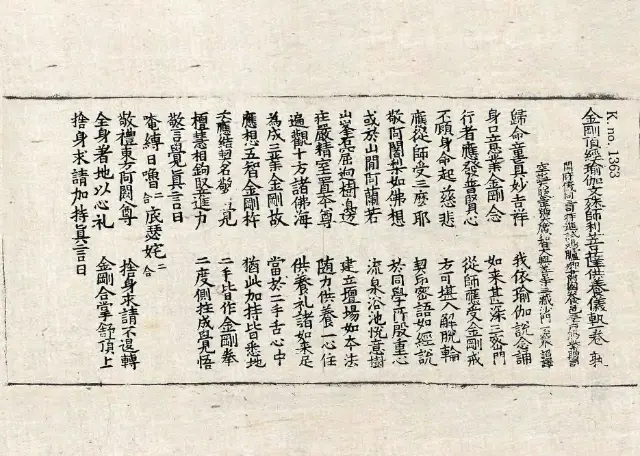 K. no. 1363
金剛頂經瑜伽文殊師利菩薩供養儀軌一卷
開府儀同三司特進試鴻臚卿肅國公食邑三千戶賜紫贈司空
諡大鑒正號大廣智大興善寺三藏沙門不空奉詔譯
歸命童真妙吉祥 我依瑜伽說念誦
身口意業金剛念 如來甚深三密門
行者應發普賢心 從師應受金剛戒
不顧身命起慈悲 方可堪入解脫輪
應從師受三麼耶 契印密語如經說
敬阿闍梨如佛想 於同學所殷重心
或於山間阿蘭若 流泉浴池悅意樹
山峯石窟迥樹邊 建立壇場如本法
莊嚴精室置本尊 隨力供養一心住
遍觀十方諸佛海 供養礼諸如來足
為成三業金剛故 當於二手舌心中
應想五智金剛杵 猶此加持皆悉地
次應結契名警覺 二手皆作金剛拳
檀慧相鉤竪進力 二度側拄成覺悟
警覺真言曰
唵縛日嚕二合底瑟姹二合
敬禮東方阿閦尊 捨身求請不退轉
全身著地以心礼 金剛合掌舒頂上
捨身求請加持真言曰